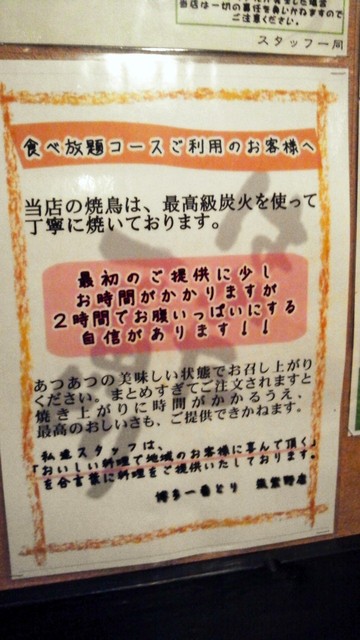 当店は一切の責任を負いかねますので
ご注意ください。
スタッフ一同
食べ放題コースご利用のお客様へ
当店の焼鳥は、最高級炭火を使って
丁寧に焼いております。
最初のご提供に少し
お時間がかかりますが
2時間でお腹いっぱいにする
自信があります！！
あつあつの美味しい状態でお召し上がり
ください。まとめすぎてご注文されますと
焼き上がりに時間がかかるうえ、
最高のおいしさも、ご提供できかねます。
私達スタッフは、
「おいしい料理で地域のお客様に喜んで頂く」
を合言葉に料理をご提供いたしております。
博多一番どり 筑紫野店